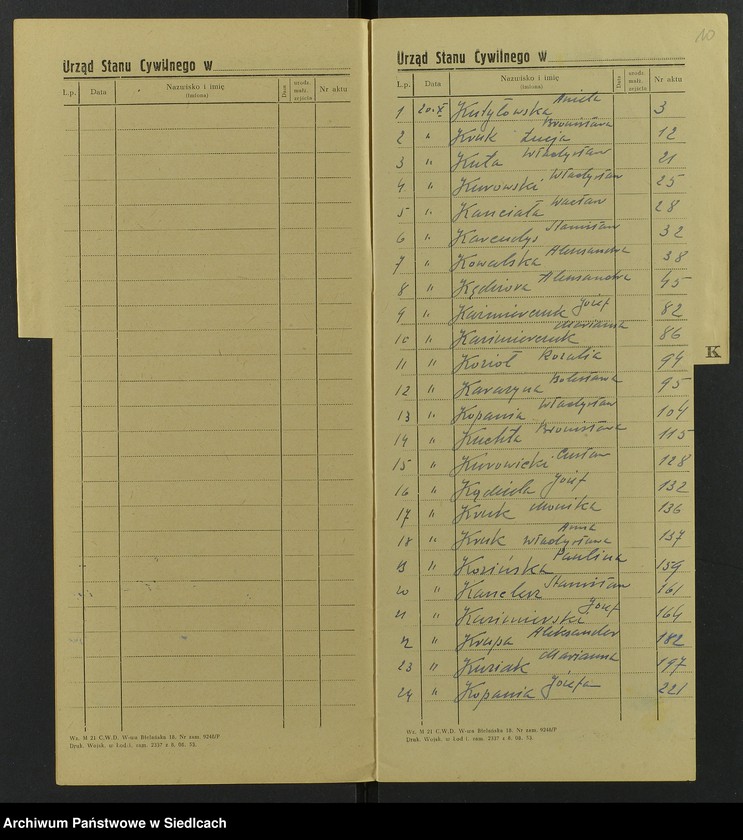 Urząd Stanu Cywilnego w
L.p. Data Nazwisko i imię (imiona) Data urodz. małż. zejścia Nr aktu
Wz. M 21 C.W.D. W-wa Bielańska 18. Nr zam. 9240/P
Druk. Wojsk. w Łodzi. zam. 2337 z 8. 08. 53.
10
Urząd Stanu Cywilnego w
L.p. Data Nazwisko i imię (imiona) Data urodz. małż. zejścia Nr aktu
1 20.X. Kudyłowska Aniela 3
2 " Kruk Łucja Bronisława 12
3 " Kuta Władysław 21
4 " Kurowski Władysław 25
5 " Kanciała Wacław 28
6 " Karendys Stanisław 32
7 " Kowalska Aleksandra 38
8 " Aleksandra 45
9 " Kazimierczuk Józef 82
10 " Kazimierczuk Marianna 86
11 " Kozioł Rozalia 94
12 " Kararyna Bolesława 95
13 " Kopania Władysław 104
14 " Kuchta Bronisława 115
15 " Kurowicki Gustaw 128
16 " Kądziela Józef 132
17 " Kruk Monika 136
18 " Kruk Władysława Anna 137
19 " Kozińska Paulina 159
20 " Kanclerz Stanisław 161
21 " Kazimierska Józef 164
22 " Krupa Aleksander 182
23 " Kuziak Marianna 197
24 " Kopania Józefa 221
K
Wz. M 21 C.W.D. W-wa Bielańska 18. Nr zam. 9240/P
Druk. Wojsk. w Łodzi. zam. 2337 z 8. 08. 53.
Archiwum Państwowe w Siedlcach